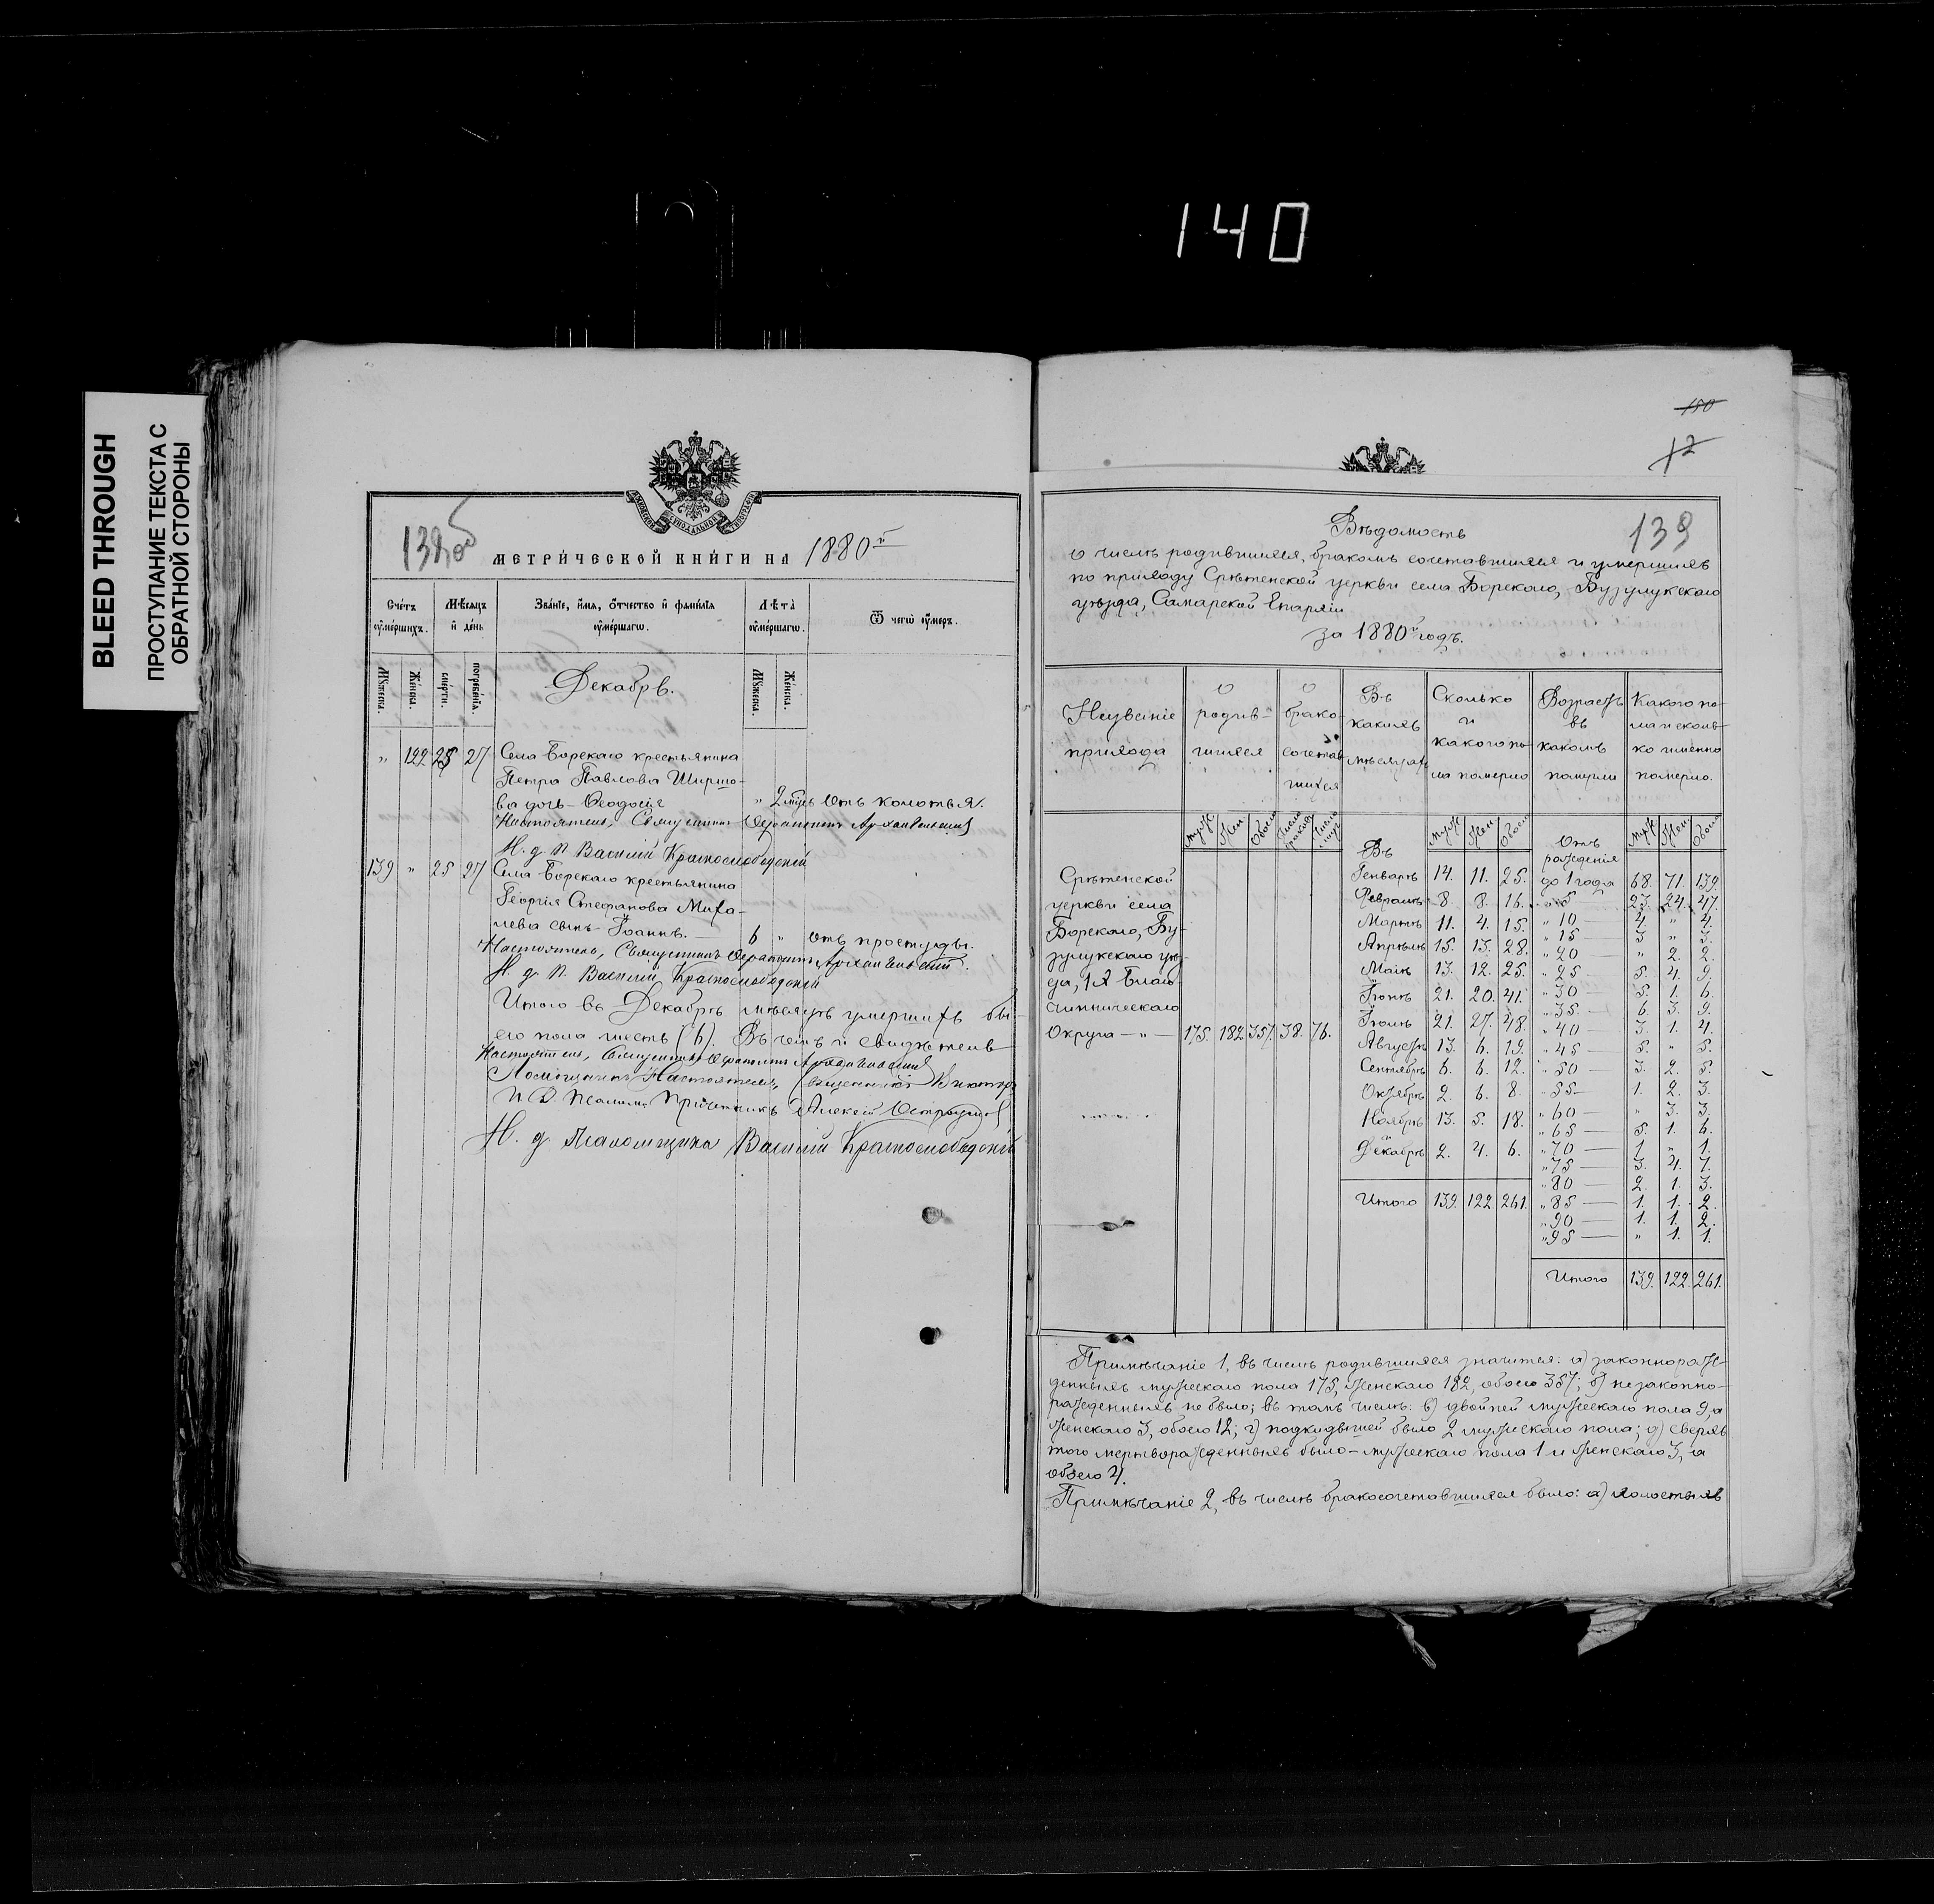 140
BLEED THROUGH
ПРОСТУПАНИЕ ТЕКСТА С
ОБРАТНОЙ СТОРОНЫ
138об
МЕТРИЧЕСКОЙ КНИГИ НА 1880й
Счетъ умершихъ.
Мѣсяцъ и день
Званіе, имя, отчество и фамилія умершаго.
Лѣта умершаго.
Ѿ чегѡ умеръ.
Мужеска.
Женска.
смерти.
погребенія.
Мужеска.
Женска.
Декабрь.
" 122 25 27 Села Борскаго крестьянина
Петра Павлова Ширшо-
ва дочь - Ѳеодосія " 2 мѣсъ Отъ колотья.
Настоятель, Священникъ Ѳерапонтъ Архангельскій
И. д. П. Василій Краснослободскій
139 " 25 27 Села Борскаго крестьянина
Георгія Стефанова Миха-
лева сынъ - Іоаннъ. 6 " отъ простуды.
Настоятель, Священникъ Ѳерапонтъ Архангельскій.
И. д. П. Василій Краснослободскій
Итого въ Декабрѣ мѣсяцѣ умершихъ обо-
его пола шесть (6). Въ чемъ и свидѣтельс
Настоятель, Священникъ Ѳерапонтъ Архангельскій
Помощникъ Настоятеля, Священникъ Викторъ
Причетникъ Алексей
И. д. Псаломщика Василій Краснослободскій
150
12
139
Вѣдомость
о числѣ родившихся, бракомъ сочетавшихся и умершихъ
по приходу Срѣтенской церкви села Борскаго, Бузулукскаго
уѣзда, Самарской Епархіи
за 1880й годъ.
Названіе прихода
О родив-шихся
О брако-сочетав-шихся
Въ какихъ мѣсяцахъ
Сколько и какого по-ла померло
Возрастъ въ какомъ померли
Какого по-ла и сколь-ко именно померло.
Муж. Жен. Обоего Число браковъ Число лицъ
Муж. Жен. Обоего
Муж. Жен. Обоего
Срѣтенской
церкви села
Борскаго, Бу-
зулукскаго уѣз-
да, Благо-
чинническаго
Округа — " — 175. 182 357. 38. 76.
Въ
Генварѣ 14. 11. 25.
Февралѣ 8. 8. 16.
Мартѣ 11. 4. 15.
Апрѣлѣ 15. 13. 28.
Маіѣ 13. 12. 25.
Іюнѣ 21. 20. 41.
Іюлѣ 21. 27. 48.
Августѣ 13. 6. 19.
Сентябрѣ 6. 6. 12.
Октябрѣ 2. 6. 8.
Ноябрѣ 13. 5. 18.
Декабрѣ 2. 4. 6.
Итого 139. 122. 261.
Отъ
рожденія
до 1 года 68. 71. 139.
" 5 — 23. 24. 47.
" 10 — 4. " 4.
" 15 — 3 " 3.
" 20 — " 2. 2.
" 25 — 5. 4. 9.
" 30 — 5. 1. 6.
" 35 — 6. 3. 9.
" 40 — 3. 1. 4.
" 45 — 5. " 5.
" 50 — 3. 2. 5.
" 55 — 1. 2. 3.
" 60 — " 3. 3.
" 65 — 5. 1. 6.
" 70 — 1 " 1.
" 75 — 3. 4. 7.
" 80 — 2. 1. 3.
" 85 — 1. 1. 2.
" 90 — 1. 1. 2.
" 95 — " 1. 1.
Итого 139. 122. 261.
Примѣчаніе 1, въ числѣ родившихся значится: а) законнорож-
денныхъ мужескаго пола 175, женскаго 182, обоего 357; б) незаконно-
рожденныхъ не было; въ томъ числѣ: в) двойней мужескаго пола 9, а
женскаго 3, обоего 12; г) подкидышей было 2 мужескаго пола; д) сверхъ
того мертворожденныхъ было - мужескаго пола 1 и женскаго 3, а
обоего 4.
Примѣчаніе 2, въ числѣ бракосочетавшихся было: а) холостыхъ